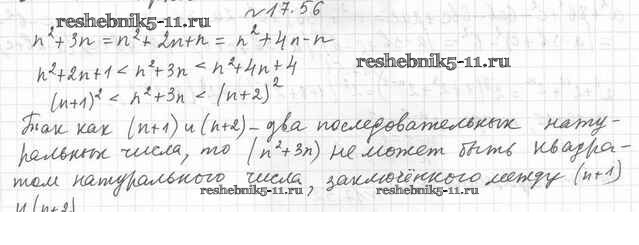 №17.56
reshebnik5-11.ru
n²+3n = n²+2n+n = n²+4n-n
n²+2n+1 < n²+3n < n²+4n+4
reshebnik5-11.ru
(n+1)² < n²+3n < (n+2)²
Так как (n+1) и (n+2) - два последовательных нату-
ральных числа, то (n²+3n) не может быть квадра-
том натурального числа, заключённого между (n+1)
reshebnik5-11.ru reshebnik5-11.ru
и (n+2)